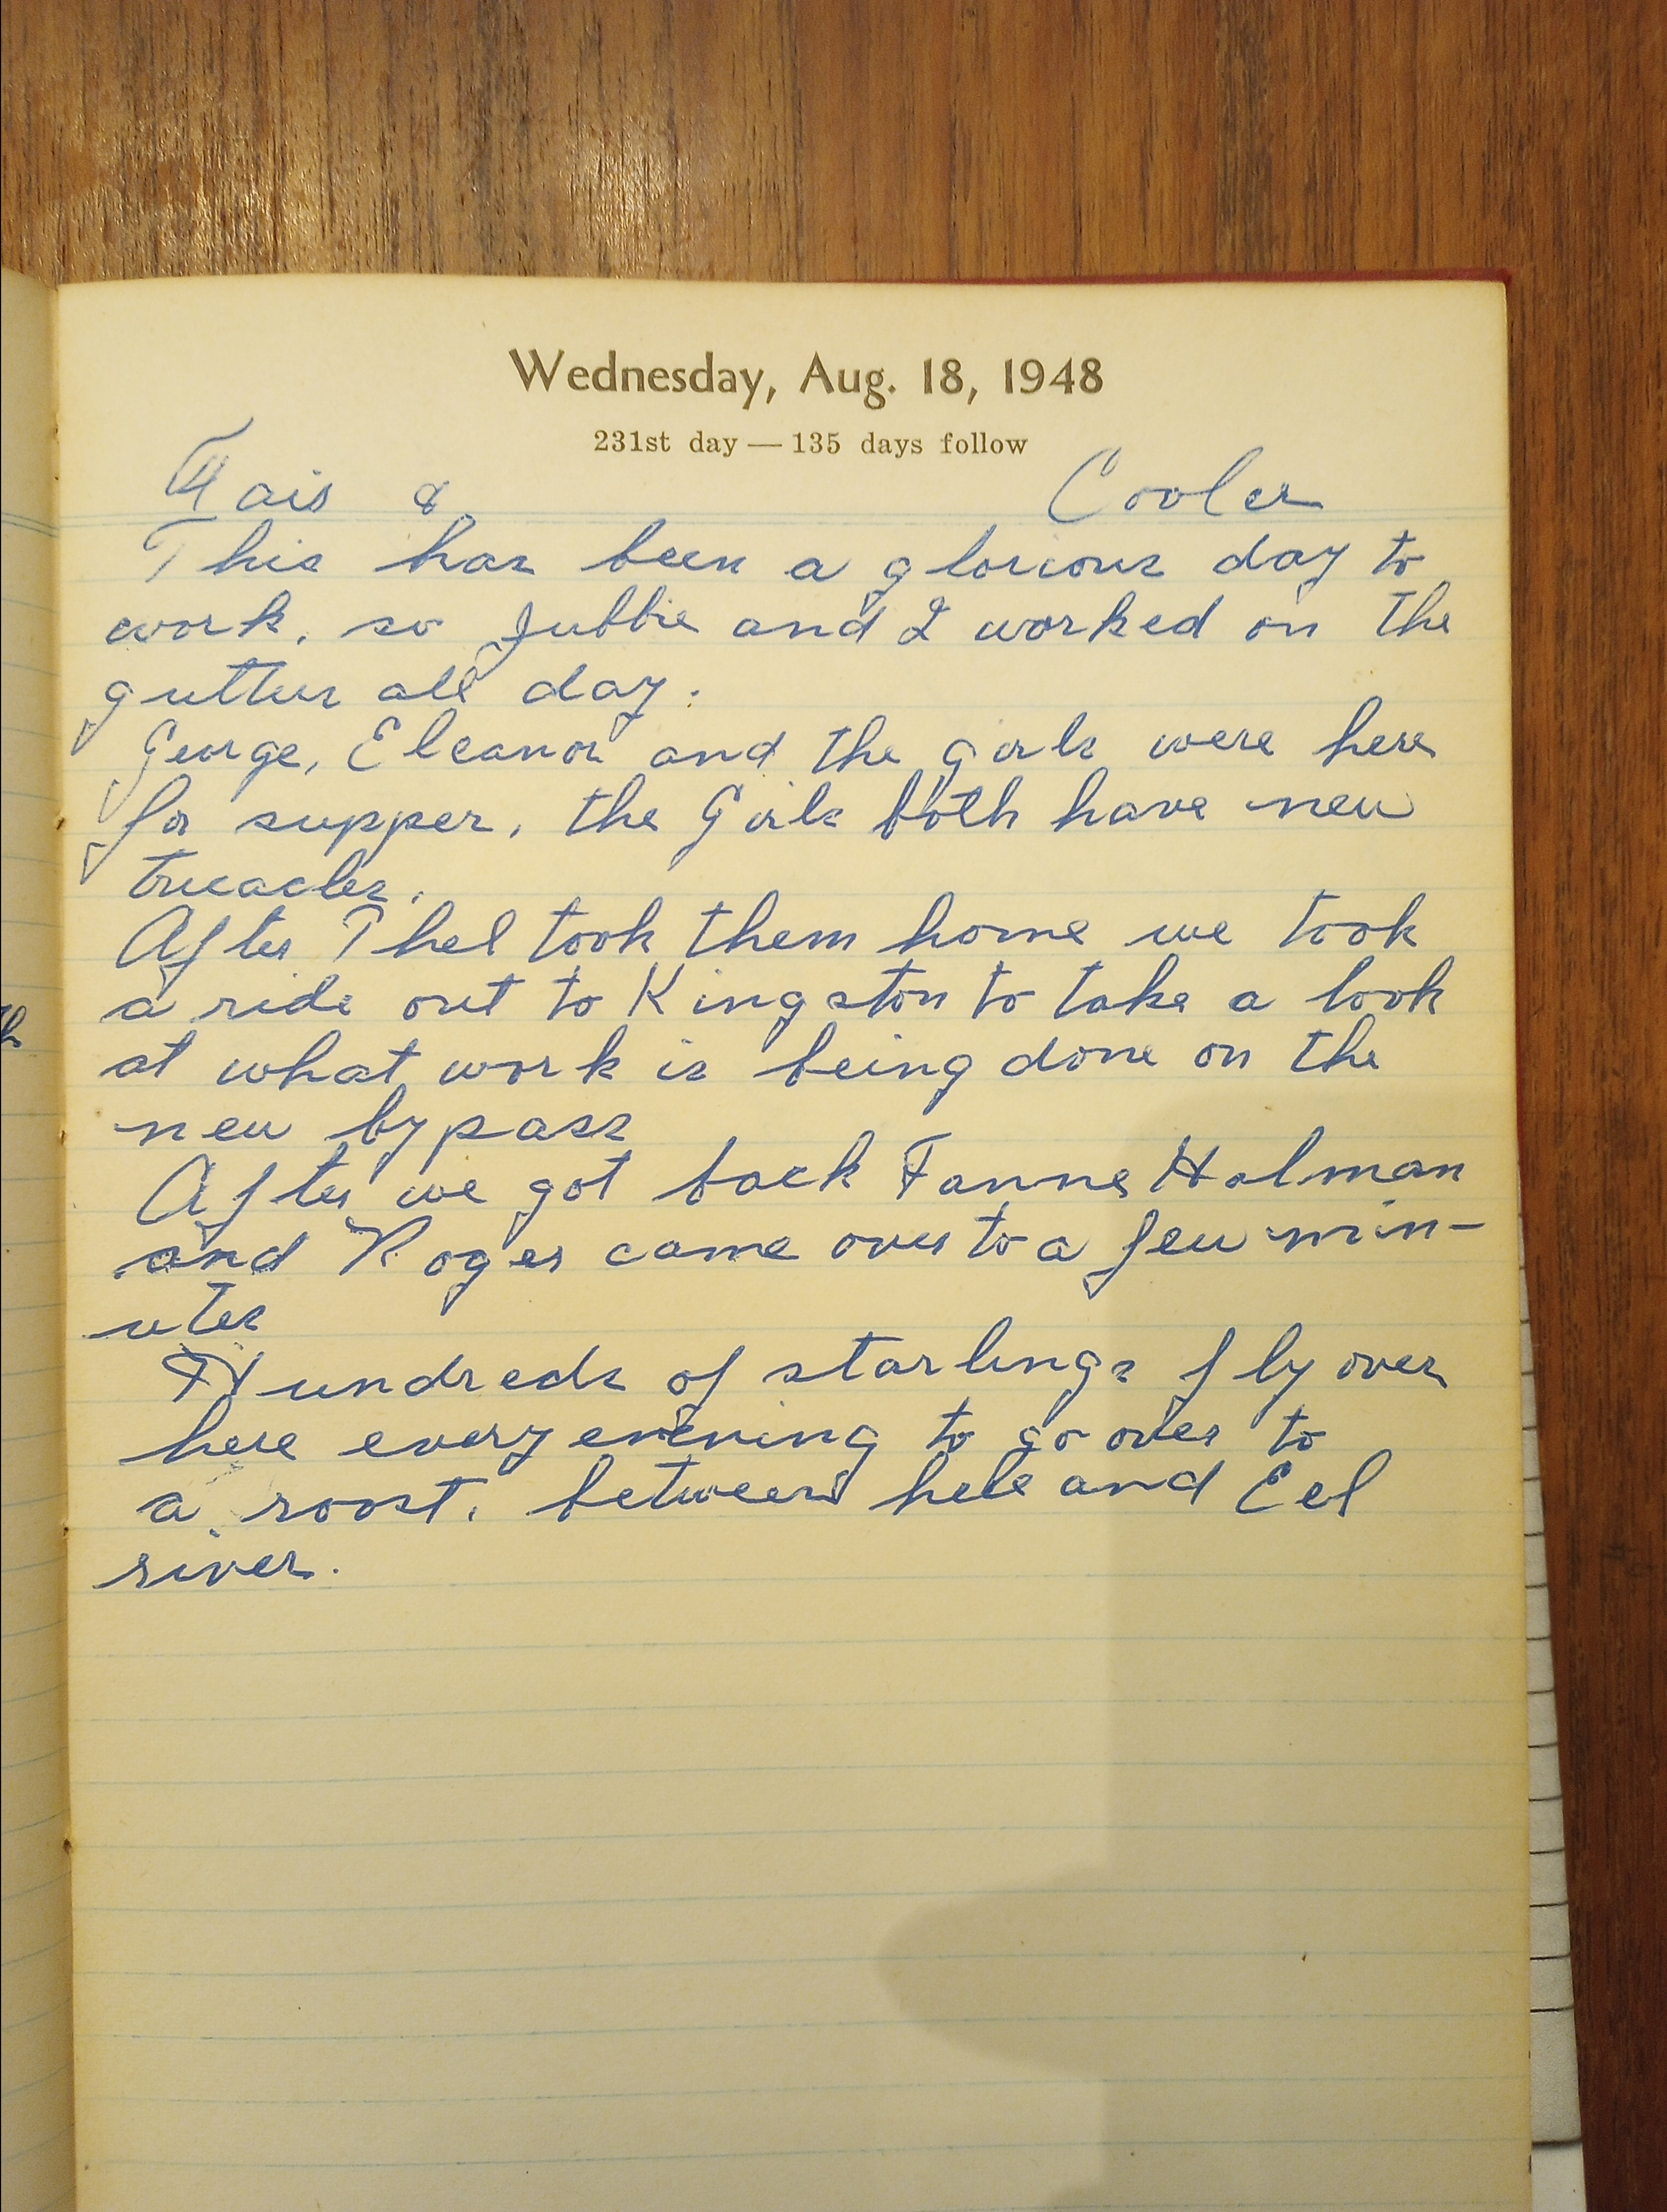 Wednesday, Aug. 18, 1948
231st day — 135 days follow
Fair & Cooler
This has been a glorious day to
work, so Jubbie and I worked on the
gutter all day.
George, Eleanor and the girls were here
for supper, the Girls both have new
After Thel took them home we took
a ride out to Kingston to take a look
at what work is being done on the
new bypass
After we got back Fanne Holman
and Roger came over to a few min-
utes
Hundreds of starlings fly over
here every evening to go over to
a roost, between here and Eel
river.